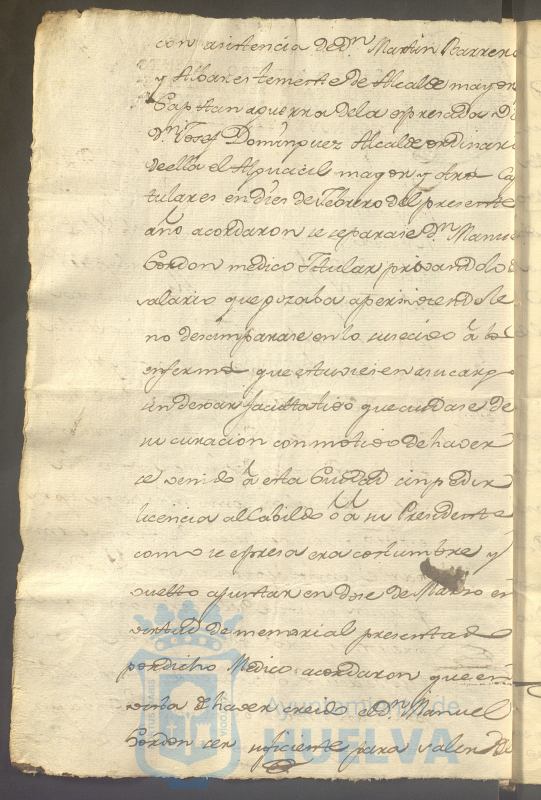 con asistencia de Dn. Martin Barrero
y Albares teniente de Alcalde mayor
Capitan aguerra dela espresada
Dn. Josef Dominguez Alcalde ordinari
de ella el Alguacil mayor y otros Cap
tulares en dies de Febrero del presente
año acordaron se separase Dn. Manuel
Gordon medico Titular pribandolo
salario que gozaba apersiviendole
no desamparase en lo susecibo á los
enfermos que estuviesen a su cargo
sin dexar facultatibo que cuidase de
su curacion con motibo de haver
se venido á esta Ciudad sin pedir
licencia al Cabildo ó á su Presidente
como se espresa era costumbre y
vuelto ajuntar en dose de Marzo en
virtud de memorial presentado
por dicho Medico acordaron que en
vista de haver creido a Dn. Manuel
Gordon ser suficiente para valer
Ayuntamiento de
HUELVA